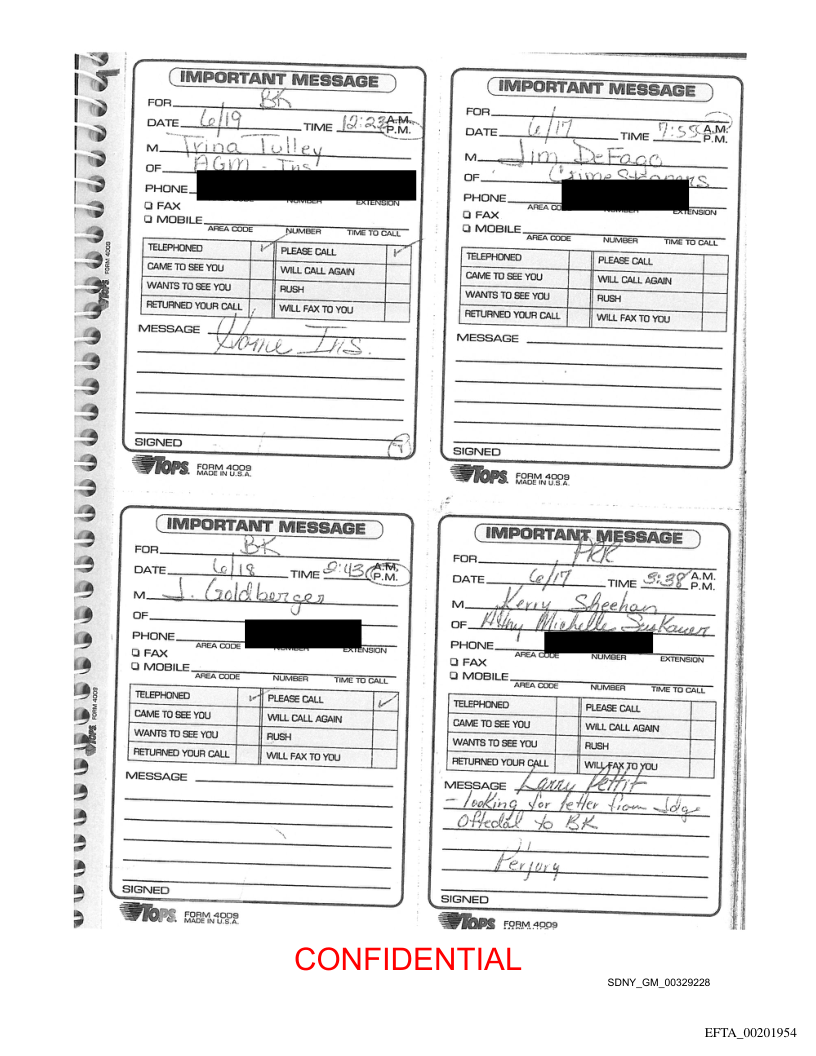 IMPORTANT MESSAGE
FOR BK
DATE 6/19 TIME 12:23 A.M.
P.M.
M Trina Tulley
OF AGM - Ins
PHONE
NUMBER EXTENSION
❑ FAX
❑ MOBILE
AREA CODE NUMBER TIME TO CALL
TELEPHONED ✓ PLEASE CALL ✓
CAME TO SEE YOU WILL CALL AGAIN
WANTS TO SEE YOU RUSH
RETURNED YOUR CALL WILL FAX TO YOU
MESSAGE Home Ins.
SIGNED
TOPS FORM 4009
MADE IN U.S.A.
IMPORTANT MESSAGE
FOR
DATE 6/17 TIME 7:55 A.M.
P.M.
M Jim DeFago
OF Crime Stoppers
PHONE
AREA CO EXTENSION
❑ FAX
❑ MOBILE
AREA CODE NUMBER TIME TO CALL
TELEPHONED PLEASE CALL
CAME TO SEE YOU WILL CALL AGAIN
WANTS TO SEE YOU RUSH
RETURNED YOUR CALL WILL FAX TO YOU
MESSAGE
SIGNED
TOPS FORM 4009
MADE IN U.S.A.
TOPS FORM 4009
IMPORTANT MESSAGE
FOR BK
DATE 6/18 TIME 9:43 A.M.
P.M.
M J. Goldberger
OF
PHONE
AREA CODE NUMBER EXTENSION
❑ FAX
❑ MOBILE
AREA CODE NUMBER TIME TO CALL
TELEPHONED ✓ PLEASE CALL ✓
CAME TO SEE YOU WILL CALL AGAIN
WANTS TO SEE YOU RUSH
RETURNED YOUR CALL WILL FAX TO YOU
MESSAGE
SIGNED
TOPS FORM 4009
MADE IN U.S.A.
IMPORTANT MESSAGE
FOR
DATE 6/17 TIME 3:38 A.M.
P.M.
M Kerry Sheehan
OF Atty Michelle Suskauer
PHONE
AREA CODE NUMBER EXTENSION
❑ FAX
❑ MOBILE
AREA CODE NUMBER TIME TO CALL
TELEPHONED PLEASE CALL
CAME TO SEE YOU WILL CALL AGAIN
WANTS TO SEE YOU RUSH
RETURNED YOUR CALL WILL FAX TO YOU
MESSAGE Larry Pettit
- looking for letter from Jdge
Oftedal to BK
Perjury
SIGNED
TOPS FORM 4009
TOPS FORM 4009
CONFIDENTIAL
SDNY_GM_00329228
EFTA_00201954